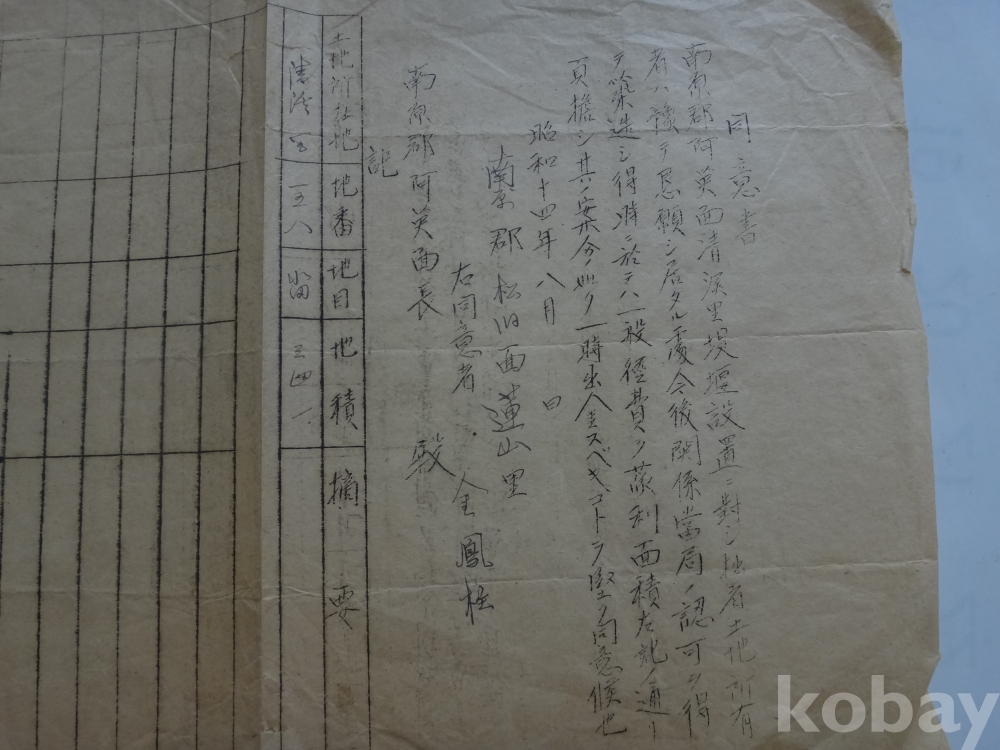 同意書
南原郡阿英面清渓里堤堰設置ニ対シ拙者土地所有
者ハ予テ懇願シ居タル処今後関係当局ノ認可ヲ得
テ築造シ得時ニ於テハ一般経費ヲ蒙利面積左記ノ通リ
負担シ其ノ案分ノ如ク一時出金スベキコトヲ堅ク同意候也
昭和十四年八月 日
南原郡松旧面蓮山里
右同意者 金鳳柱
南原郡阿英面長 殿
記
土地所在地 地番 地目 地積 摘要
清渓里 一五八 畓 三四一
kobay